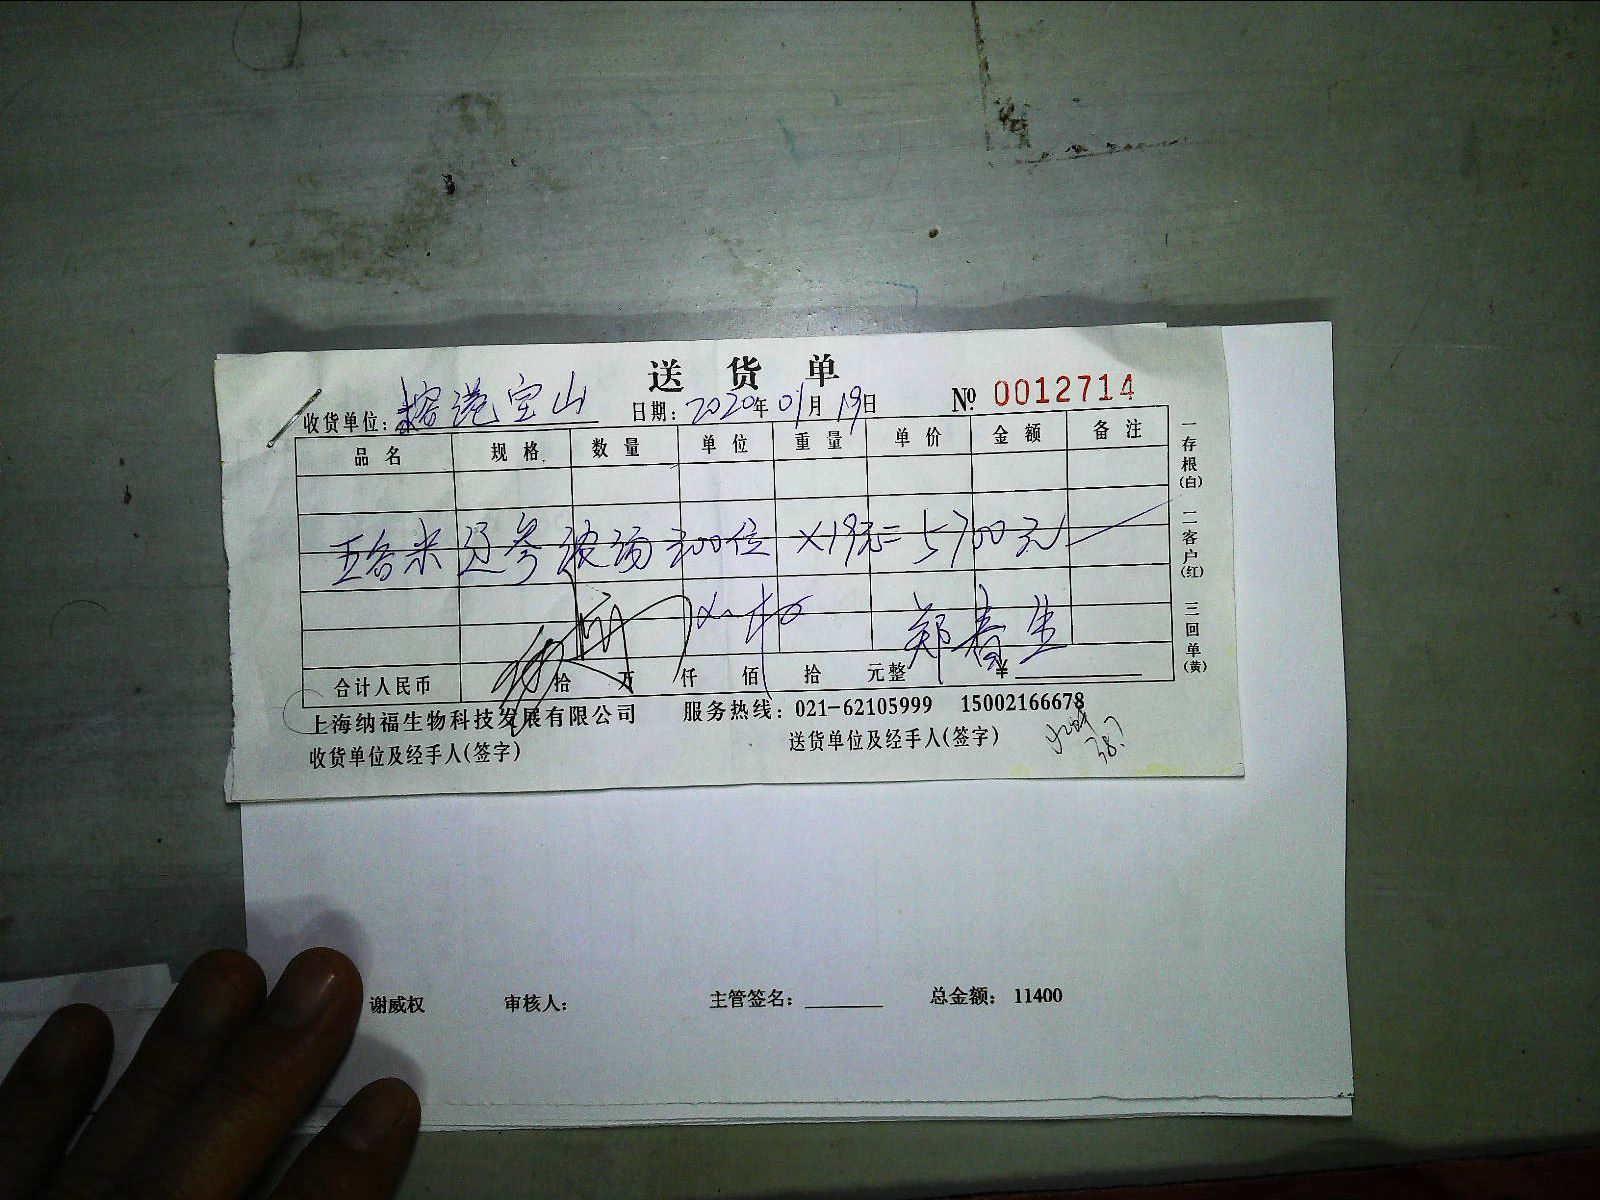 送货单
收货单位: 榕港宝山 日期: 2020年01月19日 № 0012714
品名 规格 数量 单位 重量 单价 金额 备注
五谷米辽参 300位 ×19元=5700元
郑春生
合计人民币 拾 万 仟 佰 拾 元整 ¥
上海纳福生物科技发展有限公司 服务热线: 021-62105999 15002166678
收货单位及经手人(签字) 送货单位及经手人(签字)
一存根(白) 二客户(红) 三回单(黄)
谢威权 审核人: 主管签名: 总金额: 11400